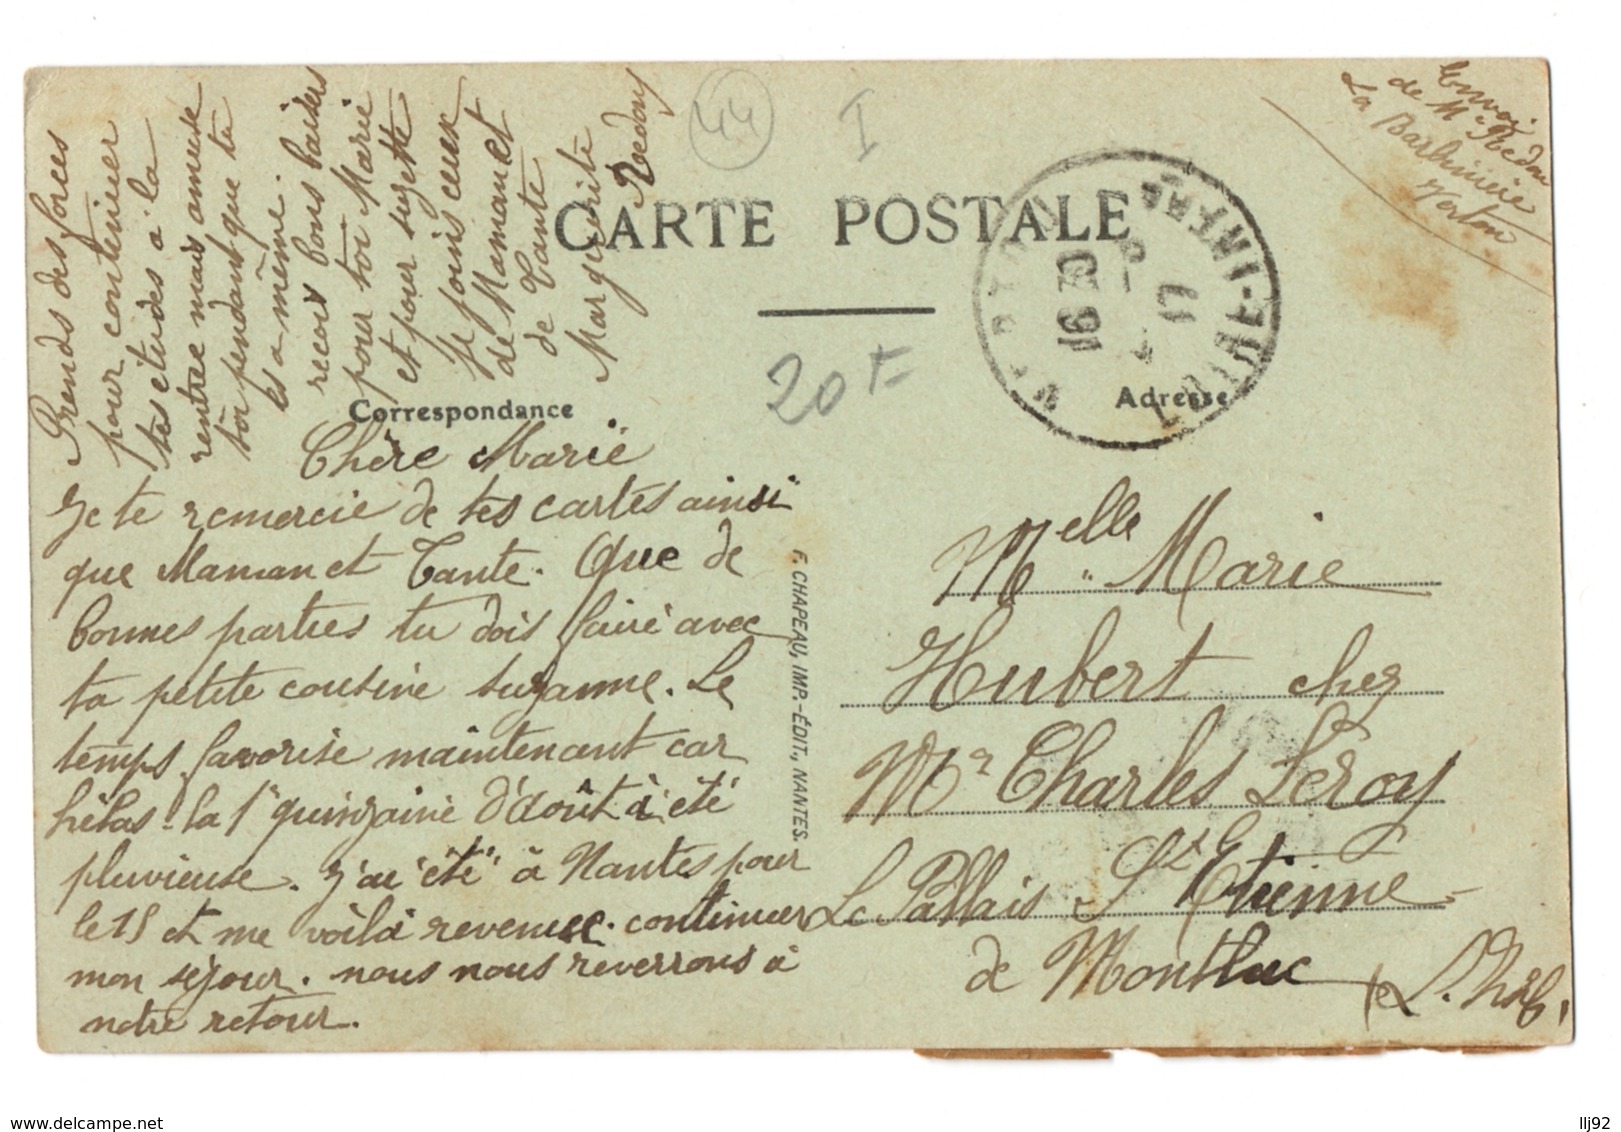 CARTE POSTALE
Correspondance
Adresse
Chère Marie
Je te remercie de tes cartes ainsi
que Maman et Tante. Que de
bonnes parties tu dois faire avec
ta petite cousine Suzanne. Le
temps favorise maintenant car
hélas ! la 1e quinzaine d'août à été
pluvieuse. J'ai été à Nantes pour
le 15 et me voilà revenue continuer
mon séjour. nous nous reverrons à
notre retour.
Prends des forces
pour continuer
tes études à la
rentrée mais amuse
toi pendant que tu
es a même.
reçois bons baisers
pour toi Marie
et pour suzette
Je joins ceux
de Maman et
de Tante
Marguerite
Redon
44
I
20 F
Envoi
de Mr Redon
La Barbinière
Vertou
16 30
17
LOIRE-INFRE
F. CHAPEAU, IMP.-ÉDIT., NANTES.
Melle Marie
Hubert chez
Mr Charles Leroy
Le Pallais St Etienne
de Montluc
(L. Infre)
www.delcampe.net
llj92